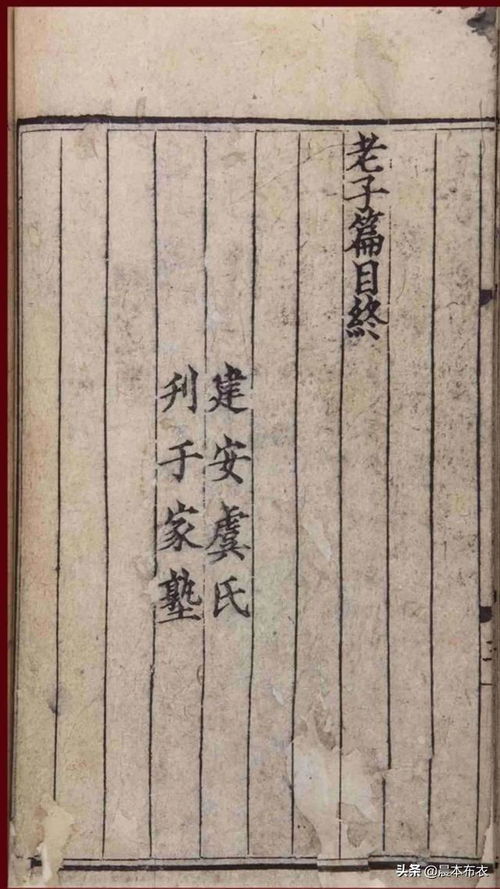 老子篇目終
建安虞氏
刋于家塾
头条 @昱本布衣